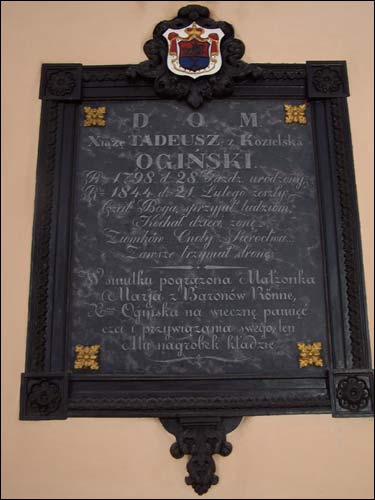 D O M
Xiążę TADEUSZ z Kozielska
OGIŃSKI.
1798 d. 28 Paźdz. urodzony,
1844 d. 21 Lutego zeszły.
Czcił Boga, sprzyjał ludziom,
Kochał dzieci, żonę,
Ziomków Cnoty Sieroctwa
Zawsze trzymał stronę
W smutku pogrążona Małżonka
Marja z Baronów Rönne,
Ogińska na wieczną pamięć
czci i przywiązania swego, ten
Mu nagrobek kładzie